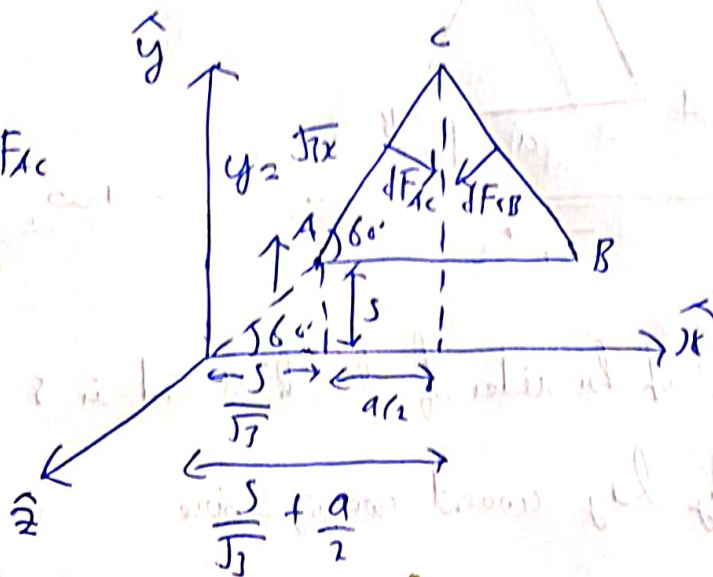 ŷ
C
F_AC
y = √3x
dF_AC
dF_CB
A
60°
B
s
60°
x̂
s/√3
a/2
ẑ
s/√3 + a/2